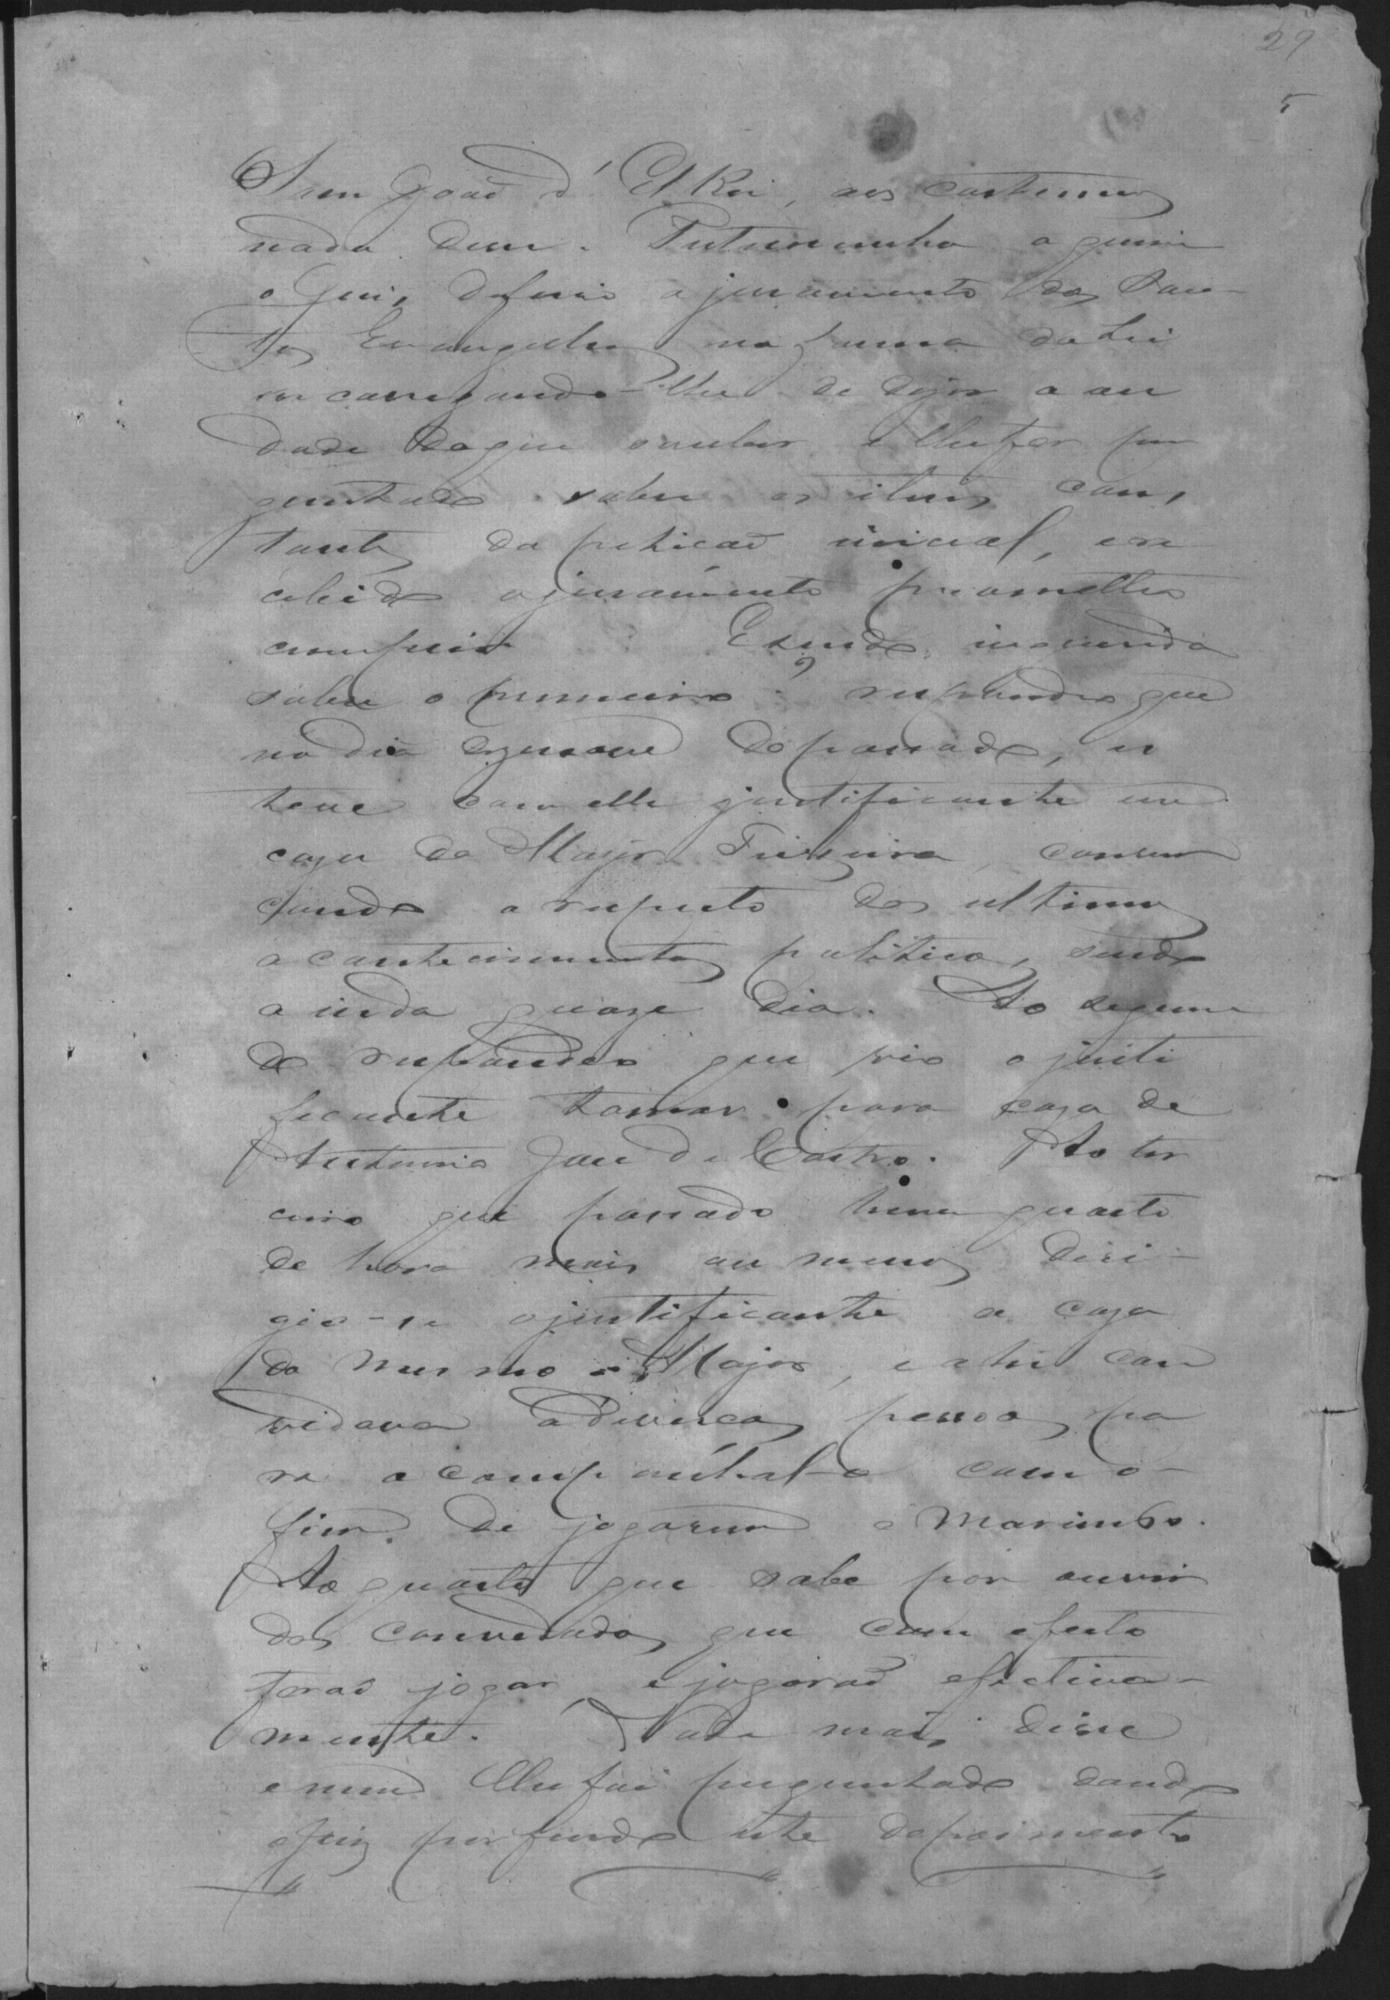 29
5
Sam Joaõ d'El Rei, aos costumes
nada disse. Testemunha a quem
o Juis deferio o juramento dos San-
tos Evangelhos na forma da Lei
encarregando-lhe de dizer a ver
dade do que souber e lhe for per
guntado sobre os itens cons
tantes da petiçaõ inicial, e re
cebido o juramento prometteo
cumprir. E sendo inquirida
sobre o primeiro: respondeo que
no dia dezenove do passado, es
teve com elle justificante em
caza do Major Teixeira, conver
çando a respeito dos ultimos
acontecimentos politicos, sendo
ainda quaze dia. Ao segun
do respondeo que vio o justi
ficante tomar para caza de
Antonio José de Castro. Ao ter
ceiro que passado hum quarto
de hora mais ou menos diri-
gio-se o justificante a caza
do mesmo Major, e ahi con
vidava a diversas pessoas pa
ra acompanhal-o com o
fim de jogarem o Marimbo.
Ao quarto que sabe por ouvir
dos convidados que com efeito
foraõ jogar, e jogaraõ efectiva-
mente. Nada mais disse
e nem lhe foi perguntado dando
o Juiz por findo este depoimento